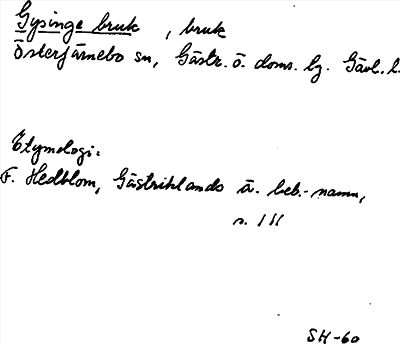 Gysinge bruk, bruk
Österfärnebo sn, Gästr. ö. doms. hg. Gävl. l.
Etymologi:
F. Hedblom, Gästriklands ä. beb.-namn,
s. 111
SH-60